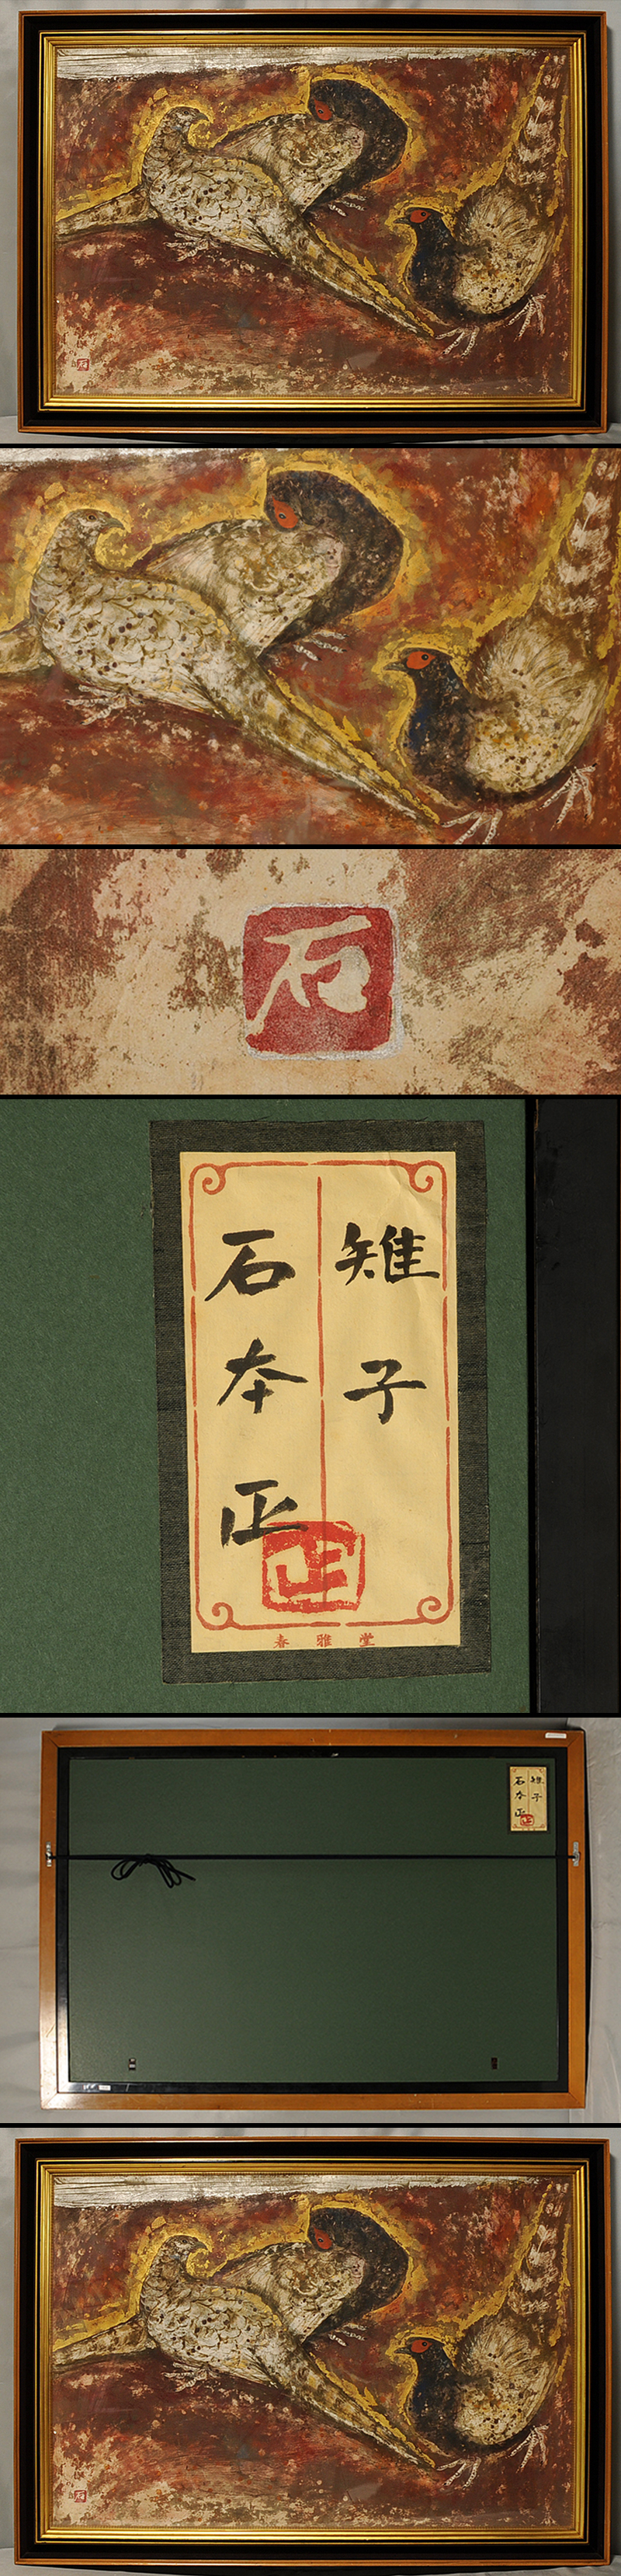 石
雉子
石本正
正
春雅堂
雉子
石本正
正
石